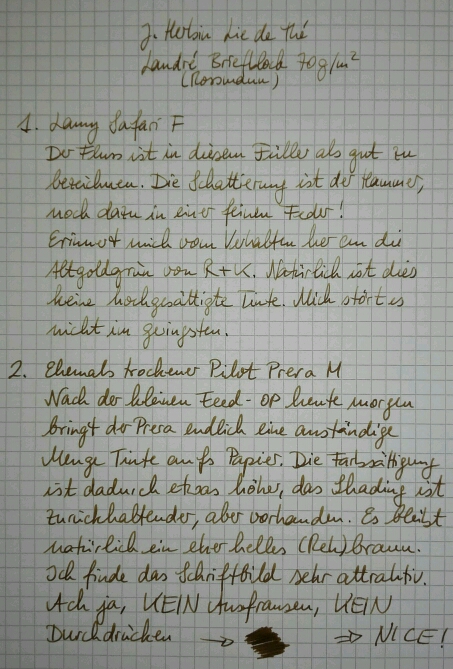 J. Herbin Lie de Thé
Landré Briefblock 70g/m²
(Rossmann)
1. Lamy Safari F
Der Fluss ist in diesem Füller als gut zu
bezeichnen. Die Schattierung ist der Hammer,
noch dazu in einer feinen Feder!
Erinnert mich vom Verhalten her an die
Altgoldgrün von R+K. Natürlich ist dies
keine hochgesättigte Tinte. Mich stört es
nicht im geringsten.
2. Ehemals trockener Pilot Prera M
Nach der kleinen Feed-OP heute morgen
bringt der Prera endlich eine anständige
Menge Tinte aufs Papier. Die Farbsättigung
ist dadurch etwas höher, das Shading ist
zurückhaltender, aber vorhanden. Es bleibt
natürlich ein eher helles (Reh)braun.
Ich finde das Schriftbild sehr attraktiv.
Ach ja, KEIN Ausfransen, KEIN
Durchdrücken → ⇒ NICE!